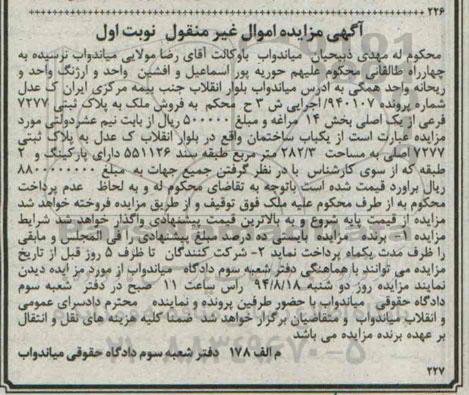 ۲۲۶
آگهی مزایده اموال غیر منقول نوبت اول
محکوم له مهدی ذبیحیان میاندواب باوکالت آقای رضا مولایی میاندواب نرسیده به
چهارراه طالقانی محکوم علیهم حوریه پور اسماعیل و افشین واحد و ارژنگ واحد و
ریحانه واحد همگی به آدرس میاندواب بلوار انقلاب جنب بیمه مرکزی ایران ک عدل
شماره پرونده ۹۴۰۱۰۷/ اجرایی ش ۳ ح محکم به فروش ملک به پلاک ثبتی ۷۲۷۷
فرعی از یک اصلی بخش ۱۴ مراغه و مبلغ ۵۰۰۰۰۰ ریال از بابت نیم عشردولتی مورد
مزایده عبارت است از یکباب ساختمان واقع در بلوار انقلاب ک عدل به پلاک ثبتی
۷۲۷۷اصلی به مساحت ۲۸۲/۳ متر مربع طبقه سند ۵۵۱۱۲۶ دارای پارکینگ و ۲
طبقه که از سوی کارشناس با در نظر گرفتن جمیع جهات به مبلغ ۸۸۰۰۰۰۰۰۰۰
ریال برآورد قیمت شده است باتوجه به تقاضای محکوم له و به لحاظ عدم پرداخت
محکوم به از طرف محکوم علیه ملک فوق توقیف و از طریق مزایده فروخته خواهد شد
مزایده از قیمت پایه شروع و به بالاترین قیمت پیشنهادی واگذار خواهد شد شرایط
مزایده ۱- برنده مزایده بایستی ده درصد مبلغ پیشنهادی را فی المجلس و مابقی
را ظرف مدت یکماه پرداخت نماید ۲- شرکت کنندگان تا ظرف ۵ روز قبل از تاریخ
مزایده می توانند با هماهنگی دفتر شعبه سوم دادگاه میاندواب از مورد مزایده دیدن
نمایند مزایده روز دو شنبه ۹۴/۸/۱۸ راس ساعت ۱۱ صبح در دفتر شعبه سوم
دادگاه حقوقی میاندواب با حضور طرفین پرونده و نماینده محترم دادسرای عمومی
و انقلاب میاندواب و متقاضیان برگزار خواهد شد ضمنا کلیه هزینه های نقل و انتقال
بر عهده برنده مزایده می باشد
م الف ۱۷۸ دفتر شعبه سوم دادگاه حقوقی میاندواب
۲۲۷
۰۲۱-۸۸۳۴۹۶۷۰-۵